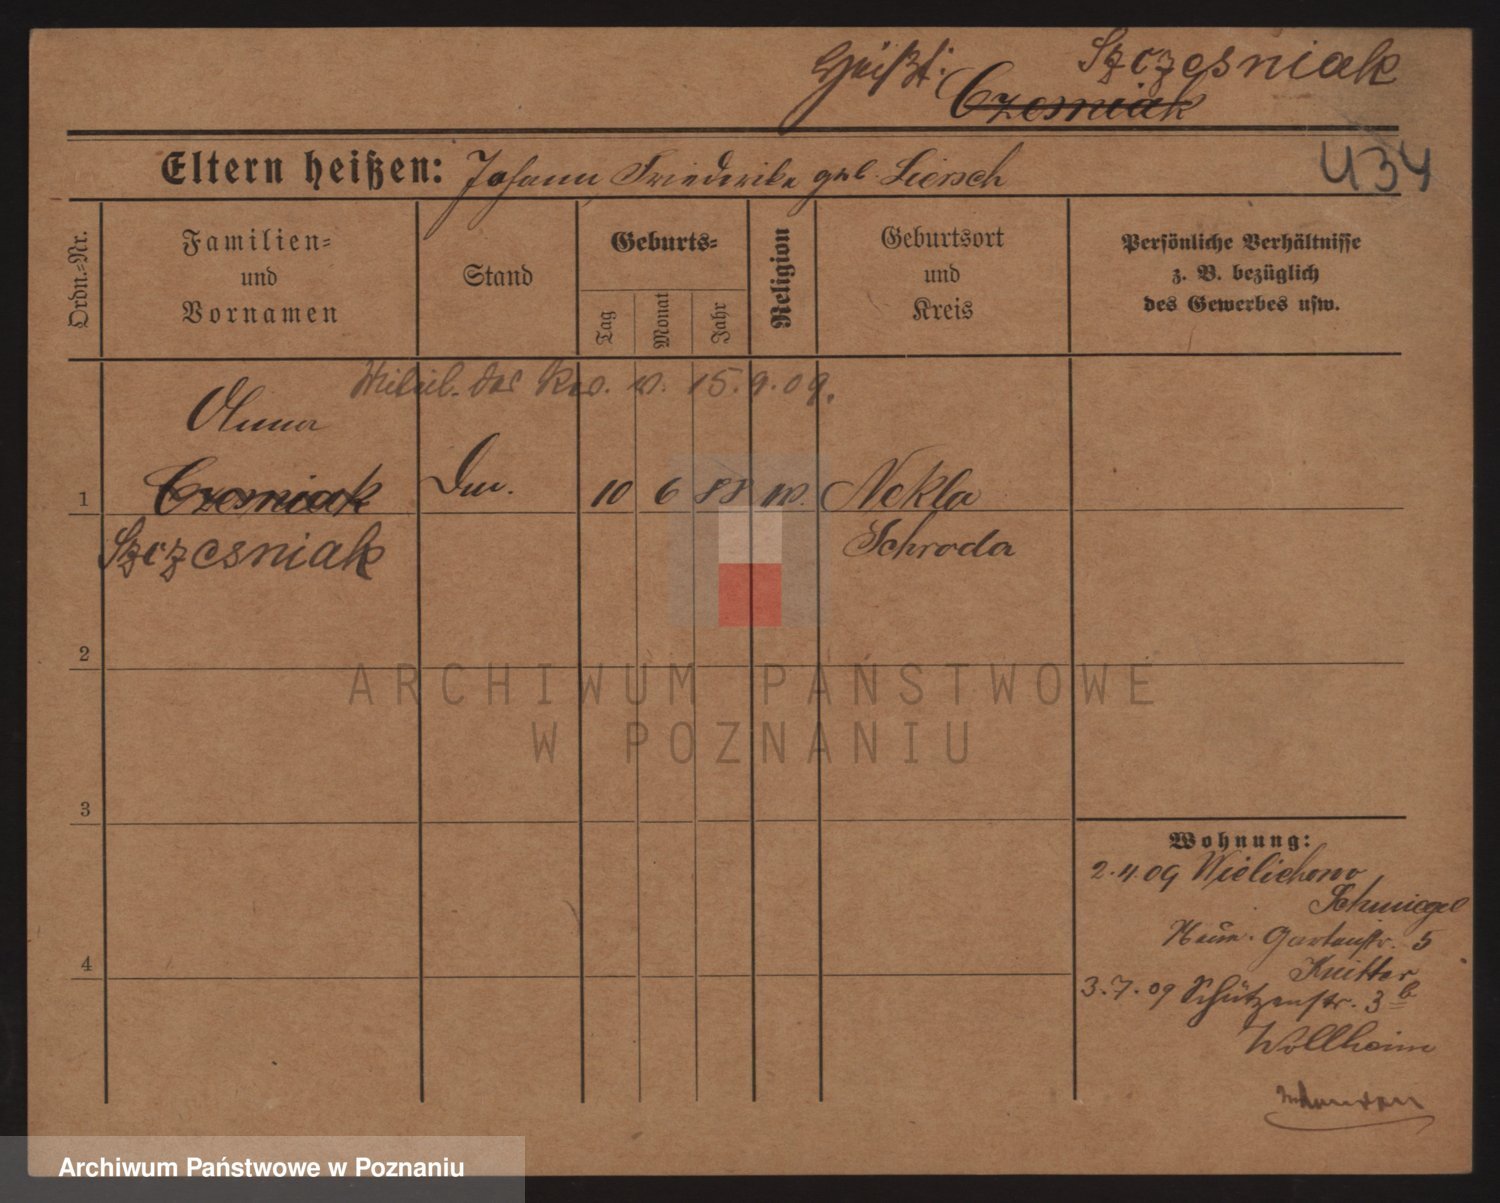 Heißt: Szczesniak
Czesniak
434
Eltern heißen: Johann, Friederike geb. Liersch
Ordn.-Nr.
Familien-
und
Vornamen
Stand
Geburts-
Tag
Monat
Jahr
Religion
Geburtsort
und
Kreis
Persönliche Verhältnisse
z. B. bezüglich
des Gewerbes usw.
das Rev. v. 15.9.09.
Anna
1 Czesniak 10 6 88 Nekla
Szczesniak Schroda
2
3
4
Wohnung:
2.4.09 Wielichowo
Schmiegel
Gartenstr. 5
Knitter
3.7.09 Schützenstr. 3 b
Wollheim
ARCHIWUM PAŃSTWOWE
W POZNANIU
Archiwum Państwowe w Poznaniu